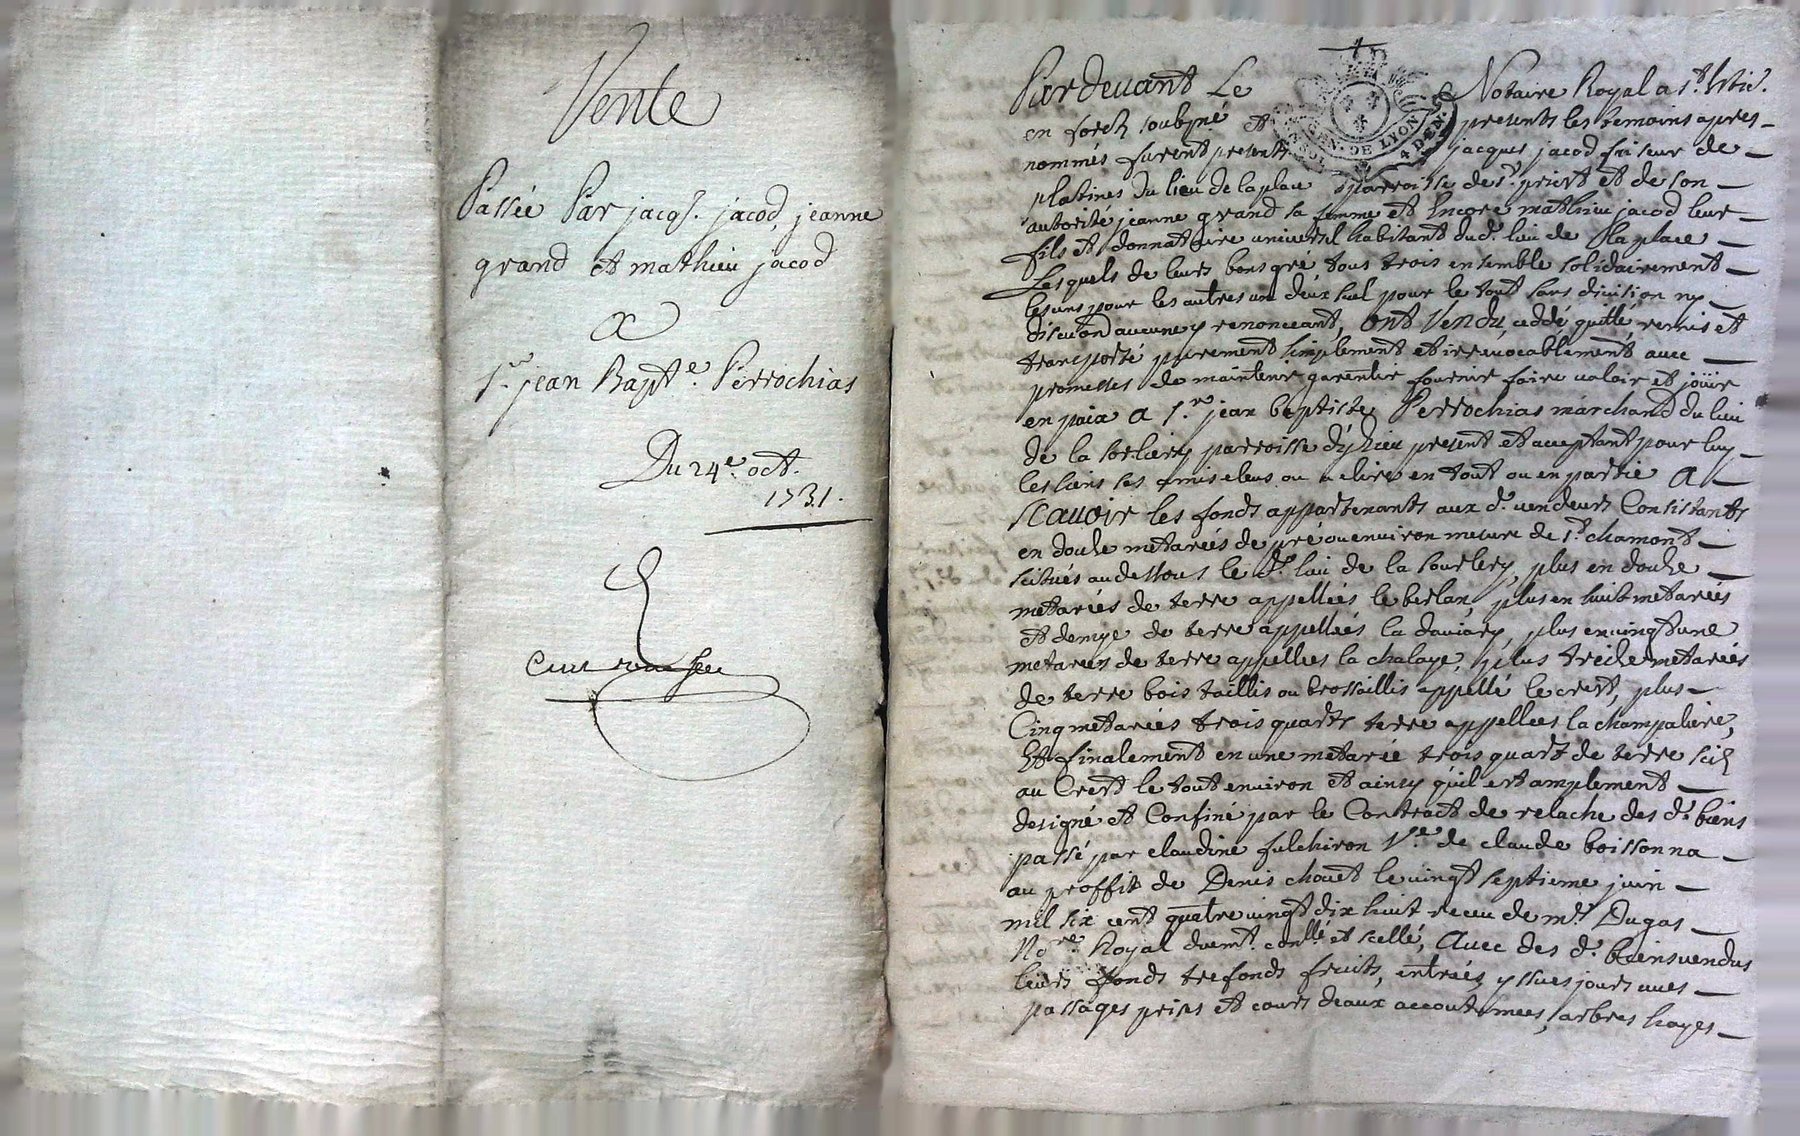 Vente
Passée Par jacq. jacod, jeanne
grand et mathieu jacod
A
Sr. jean Bapte. Perrochias
Du 24e. oct.
1731.
GEN. DE LYON
4 DEN.
Pardevant Le Notaire Royal a St. Etie.
en forez soubsné et presents les temoins apres
nommés furent presents jacques jacod friseur de
platines du lieu de la place parroisse de St. priest et de son
autorité jeanne grand sa femme et Encore mathieu jacod leur
fils et donnataire universel habitant dud. lieu de la place
Lesquels de leurs bons gré tous trois ensemble solidairement
les uns pour les autres un deux seul pour le tout sans division ny
discution aucune y renonceant, ont Vendu, ceddé, quitté, remis et
transporté purement simplement et irrevocablement avec
promesses de maintenir garentir fournir faire valoir et joüir
en paix a Sr. jean baptiste Perrochias marchand du lieu
de la sorliery parroisse d'yzieu present et acceptant pour luy
les siens ses amis eleus ou a elire en tout ou en partie A
SCAVOIR les fonds appartenants aux d. vendeurs Consistants
en douze metariés de pré ou environ mesure de St. chamont
scitués au dessous le d. lieu de la sourlery, plus en douze
metariés de terre appellées le berlan, plus en huit metariés
et demye de terre appellées la daviary, plus en vingt une
metariés de terre appellées la chalaye, plus treize metariés
de terre bois taillis ou brossaillis appellé le crest, plus
Cinq metariés trois quarts terre appellees la champaliere,
Et finalement en une metarié trois quart de terre scize
au Crest le tout environ et ainsy qu'il est amplement
designé et Confiné par le Contract de relache des d. biens
passé par claudine fulchiron Ve. de claude boissonna
au proffit de Denis chouet le vingt septieme juin
mil six cent quatre vingt dix huit receu de me. Dugas
Nore. Royal duemt. conllé et scellé, Avec des d. biens vendus
leurs fonds trefonds fruits, entrées, yssues jours vues
passages prises et cours deaux accoutumees, arbres hayes